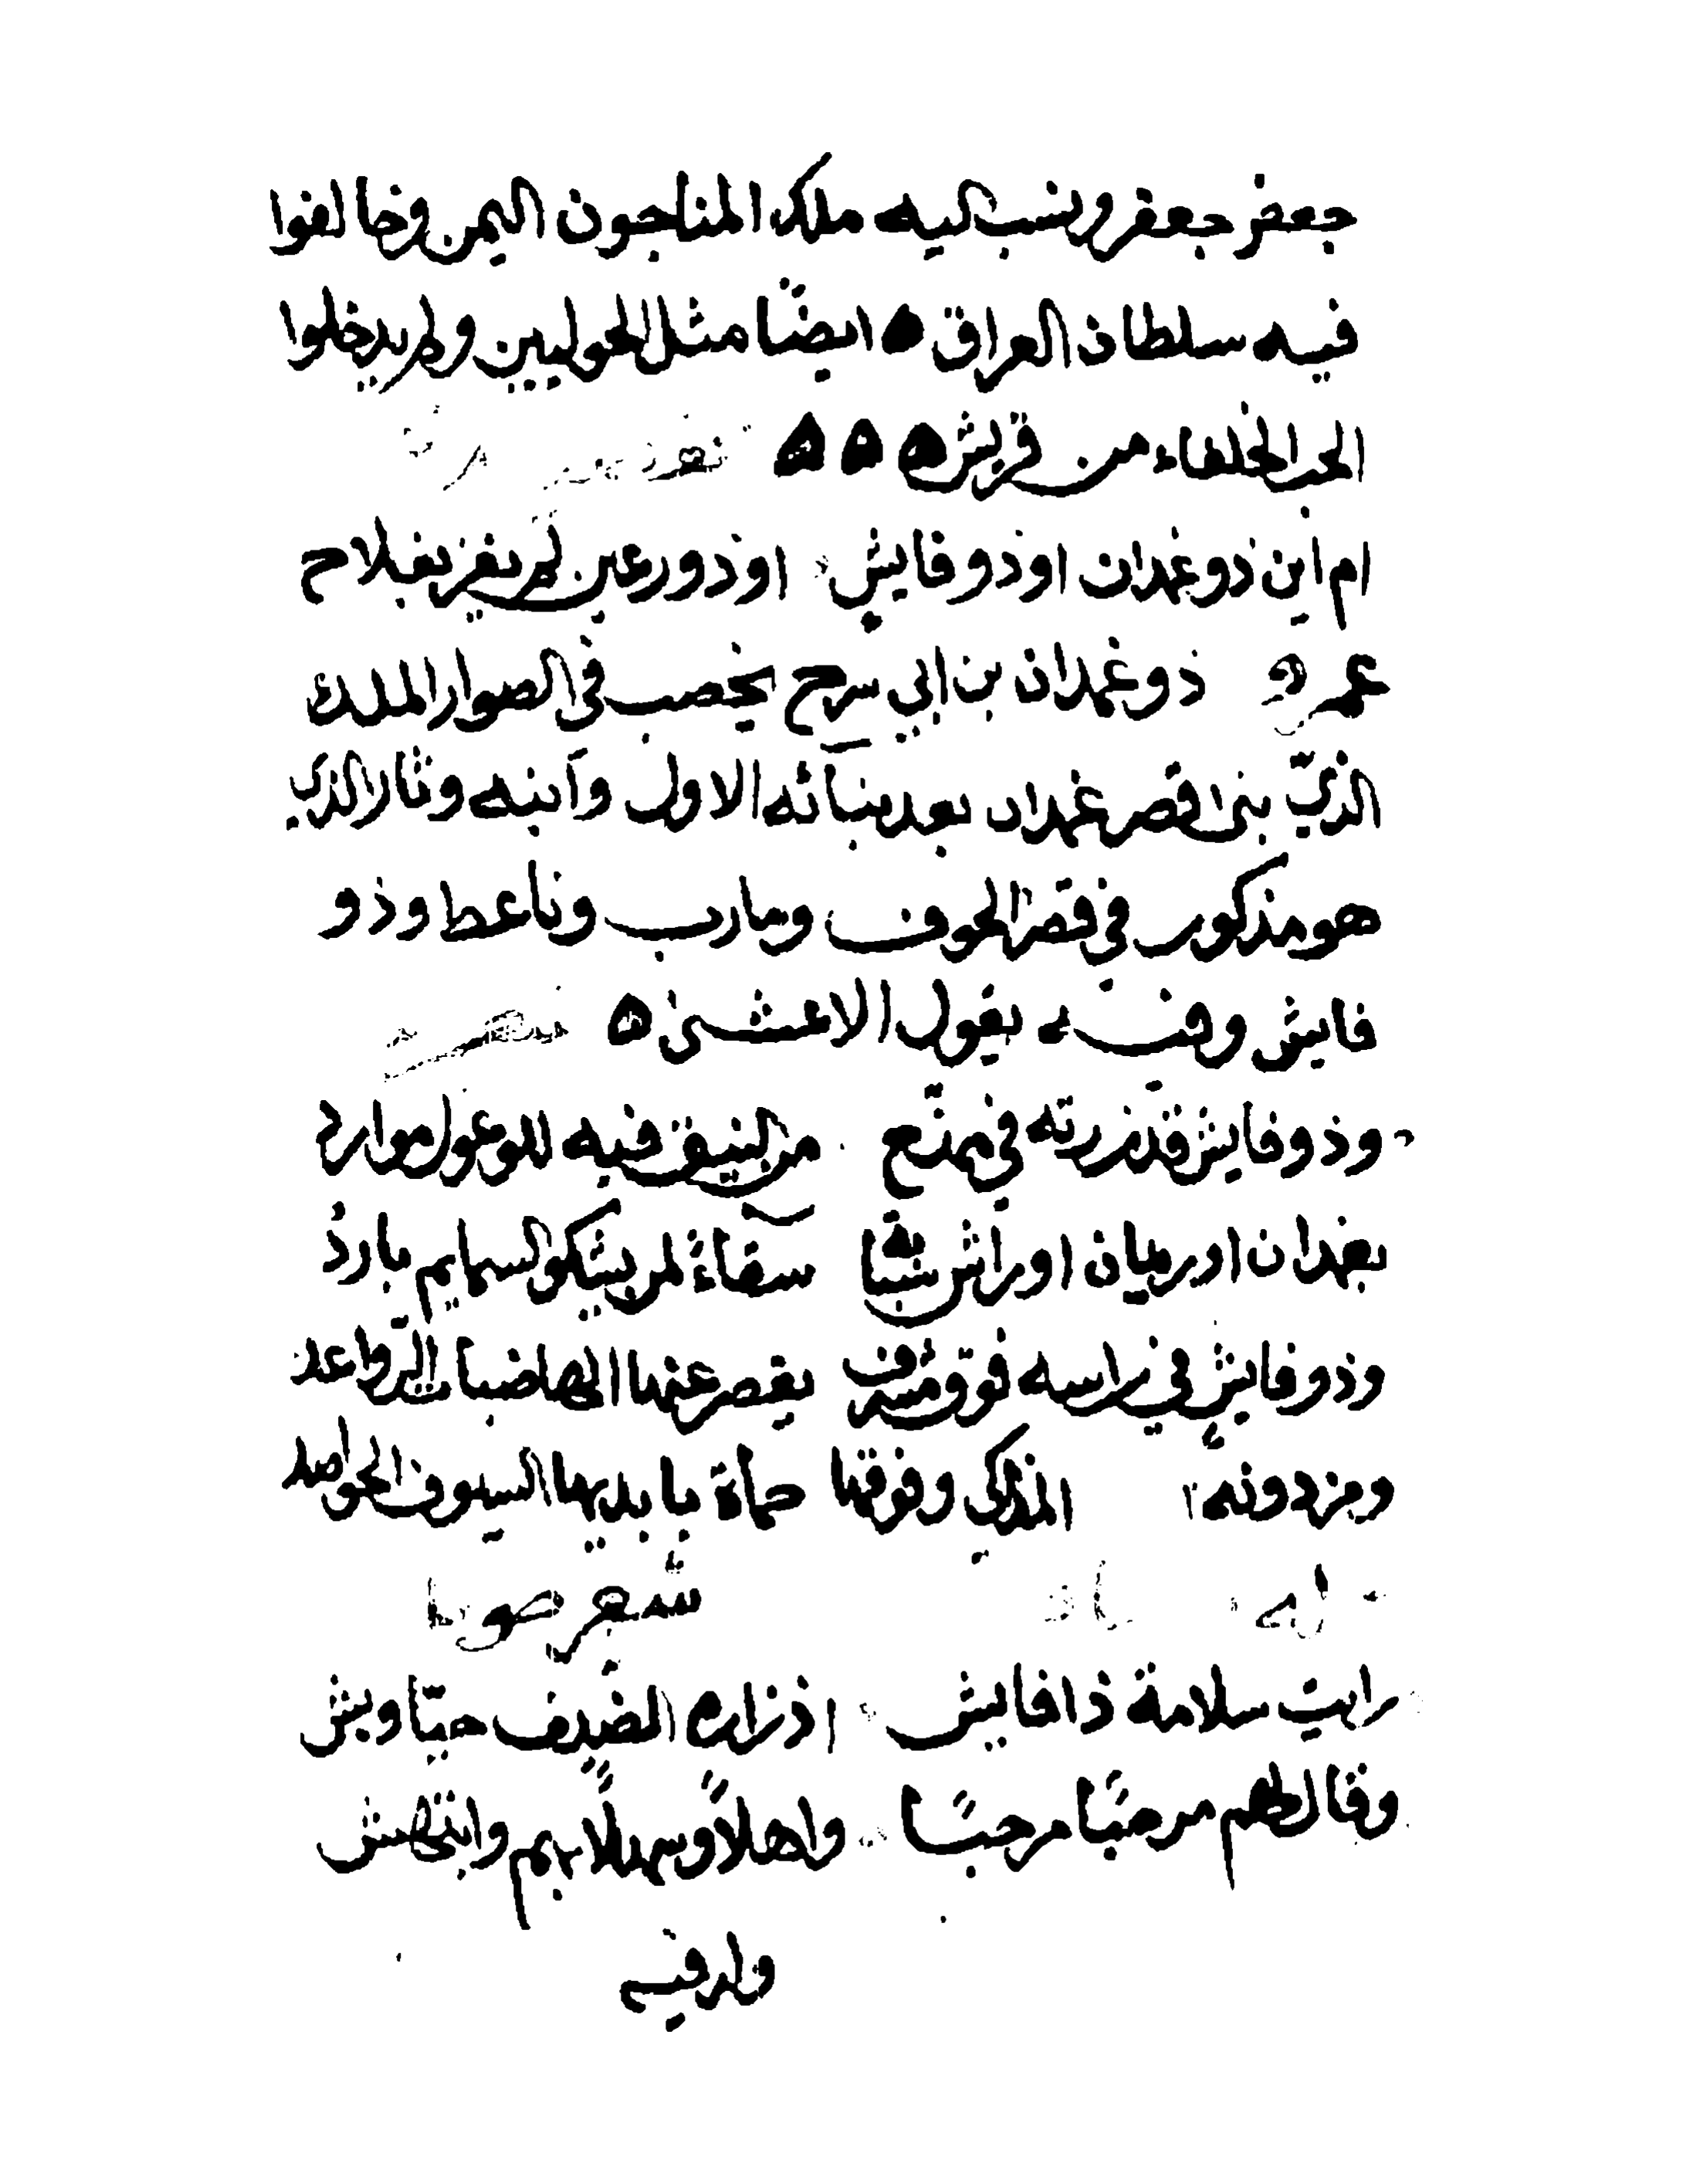 جعفر جعفر ونسب اليه ملك المناجون اليمن وخالفوا
فيه سلطان العراق ايضًا مثل الحوليين ولم يدخلوا
الى الخلفاء من قريش ۵۵۵
ام اين ذو غمدان او ذو فايش او ذو رعين لم يفز بفلاح
ذو غمدان بن ابي سرح يخصب في الصوار الملك
الذيّ بنى قصر غمدان بعد بنائه الاول وابنه وثار الذي
هو مذكور في قصر الجوف ومارب وناعط وذو
فايش وفيه يقول الاعشى ۵
وذو فايش قد زرته في ممتّع من النيق فيه للوعول موارد
بغمدان او ريمان او راس شفاء لمن يشكو السمايم بارد
وذو فايش في راسه فوق مشرف يقصر عنها الهاضبات الرواعد
ومن دونه المذاكي وفوقها حماة بايديها السيوف الحواصد
شعر
رايت سلامة ذا فايش اذ زاره الضيف حيّا وبش
وقال لهم مرحبًا مرحبًا واهلًا وسهلًا بهم وابتهش